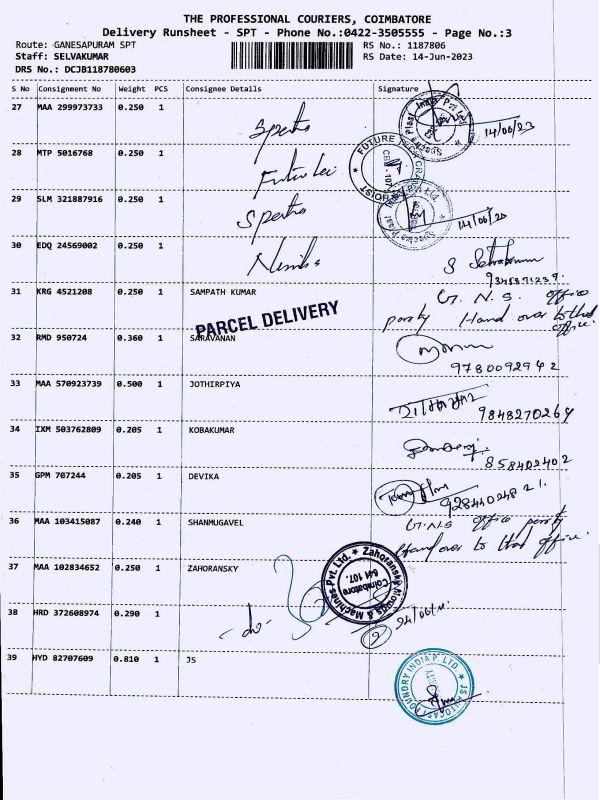 THE PROFESSIONAL COURIERS, COIMBATORE
Delivery Runsheet - SPT - Phone No.:0422-3505555 - Page No.:3
Route: GANESAPURAM SPT RS No.: 1187806
Staff: SELVAKUMAR RS Date: 14-Jun-2023
DRS No.: DCJB118780603
S No Consignment No Weight PCS Consignee Details Signature
27 MAA 299973733 0.250 1 Spectra 14/06/23
28 MTP 5016768 0.250 1 FUTURE
29 SLM 321887916 0.250 1 Spectra 14/06/23
30 EDQ 24569002 0.250 1
31 KRG 4521208 0.250 1 SAMPATH KUMAR G. N. S. office
party Hand over to that office.
PARCEL DELIVERY
32 RMD 950724 0.360 1 SARAVANAN
9780092942
33 MAA 570923739 0.500 1 JOTHIRPIYA
9848270264
34 IXM 503762809 0.205 1 KOBAKUMAR
858402402
35 GPM 707244 0.205 1 DEVIKA
36 MAA 103415087 0.240 1 SHANMUGAVEL G.N.S office party
Hand over to that office.
37 MAA 102834652 0.250 1 ZAHORANSKY
Zahoransky Moulds & Machines Pvt. Ltd.
Coimbatore
641 107.
38 HRD 372608974 0.290 1 - do -
39 HYD 82707609 0.810 1 JS
JS AUTOCAST FOUNDRY INDIA P. LTD.